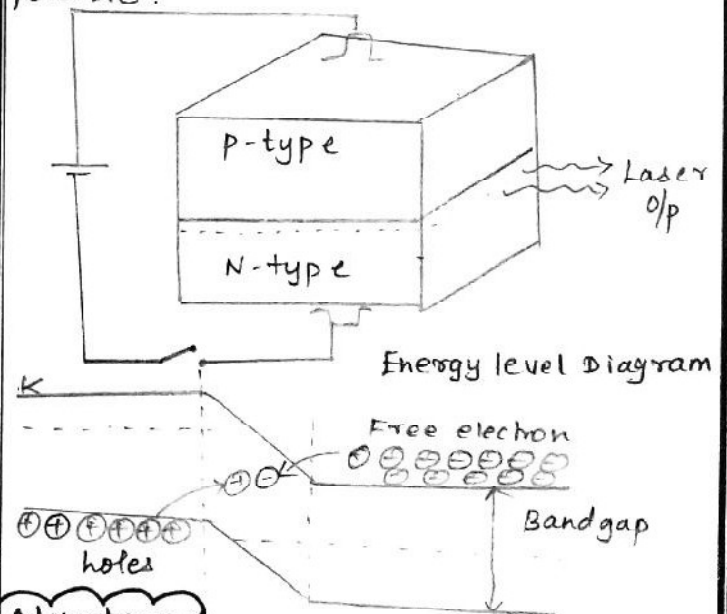 P-type
Laser
O/p
N-type
Energy level Diagram
K
Free electron
Bandgap
holes